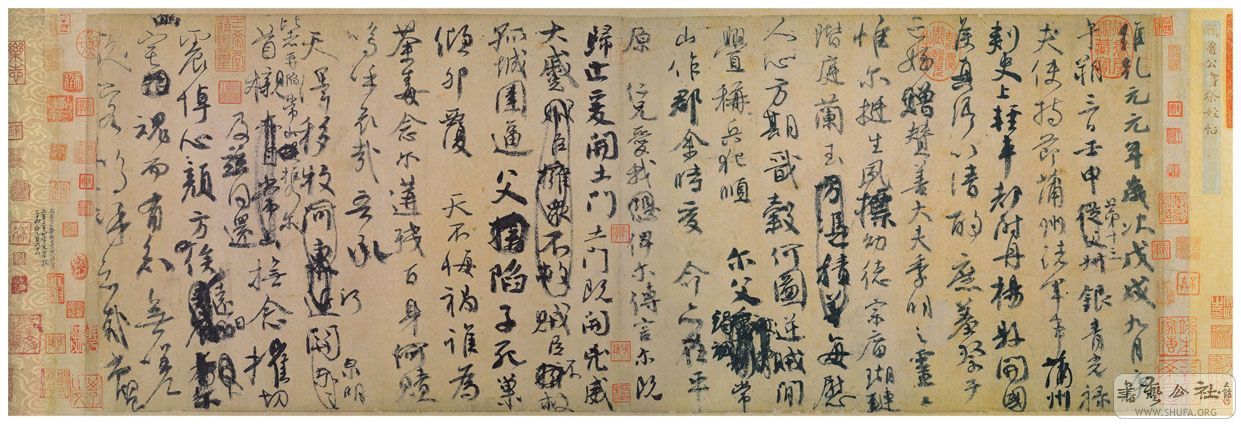 顏魯公書祭姪帖
維乾元元年歲次戊戌九月庚
午朔三日壬申從父第十三叔銀青光祿
夫使持節蒲州諸軍事蒲州
刺史上輕車都尉丹楊縣開國
侯真卿以清酌庶羞祭于
亡姪贈贊善大夫季明之靈曰
惟爾挺生夙標幼德宗廟瑚璉
階庭蘭玉方憑積善每慰
人心方期戩穀何圖逆賊閒
釁稱兵犯順 爾父竭誠常
山作郡余時受命亦在平
原 仁兄愛我恐俾爾傳言爾既
歸止爰開土門土門既開兇威
大蹙賊臣擁衆不救賊臣不救
孤城圍逼父擒陷子死巢
傾卵覆 天不悔禍誰為
荼毒念爾遘殘百身何贖
嗚乎哀哉吾承
天澤移牧河東近河關 泉明
比者再陷常山提攜爾
首櫬亦自常山及茲同還撫念摧切
震悼心顏方俟遠日卜爾
幽宅相魂而有知無嗟
久客嗚呼哀哉尚饗
書藝公社
WWW.SHUFA.ORG